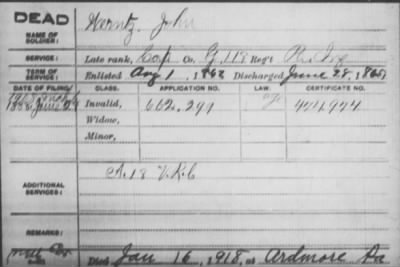 DEAD
NAME OF SOLDIER: Harntz, John
SERVICE: Late rank, Corp Co. G, 118 Reg't Pa. Inf
TERM OF SERVICE: Enlisted Aug 1, 1862 Discharged June 28, 1865
DATE OF FILING. CLASS. APPLICATION NO. LAW. CERTIFICATE NO.
1888, June 29 Invalid, 662.291 444944
Widow,
Minor,
ADDITIONAL SERVICES: A. 18 V.R.C
REMARKS:
Died Jan 16, 1918, at Ardmore Pa